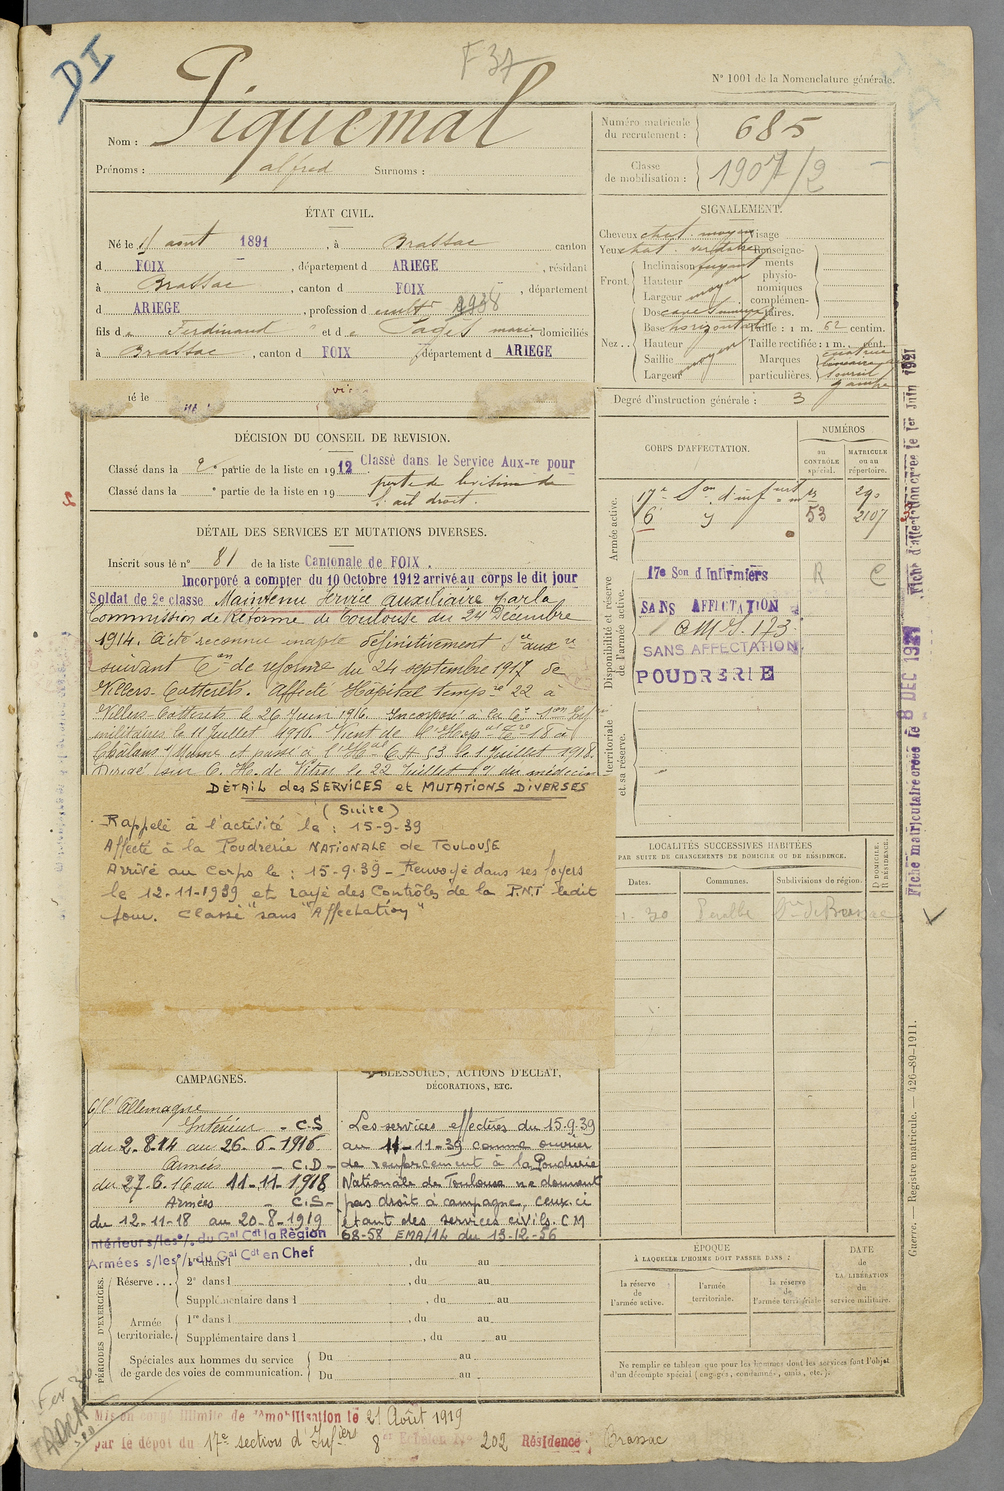 DI
F 37
N° 1001 de la Nomenclature générale.
Nom : Piquemal
Prénoms : alfred Surnoms :
Numéro matricule du recrutement : 685
Classe de mobilisation : 1907/2
ÉTAT CIVIL.
Né le août 1891, à Brassac canton
d FOIX, département d ARIEGE, résidant
à Brassac, canton d FOIX, département
d ARIEGE, profession d cultr 1938
fils de Ferdinand et de Pagès marie, domiciliés
à Brassac, canton d FOIX, département d ARIEGE
SIGNALEMENT.
Cheveux chat. moyen Visage
Yeux chat. verdatre Renseignements physionomiques complémentaires.
Front. Inclinaison fuyant
Hauteur
Largeur moyen
Nez.. Dos cave
Base horizontale Taille : 1 m. 62 centim.
Hauteur Taille rectifiée : 1 m. cent.
Saillie moyen Marques
Largeur particulières.
Degré d'instruction générale : 3
né le
DÉCISION DU CONSEIL DE REVISION.
Classé dans la 2e partie de la liste en 1912 Classé dans le Service Aux-re pour
Classé dans la " partie de la liste en 19 perte de la vision de
l'œil droit.
DÉTAIL DES SERVICES ET MUTATIONS DIVERSES.
Inscrit sous le n° 81 de la liste Cantonale de FOIX.
Incorporé a compter du 10 Octobre 1912 arrivé au corps le dit jour
Soldat de 2e classe Maintenu service auxiliaire par la
Commission de Réforme de Toulouse du 24 Décembre
1914. A été reconnu inapte définitivement Sce auxre
suivant Con de réforme du 24 septembre 1917 de
Villers-Cotterets. Affecté Hôpital tempre 22 à
Villers-Cotterets le 26 Juin 1916. Incorporé à la 6e Son Inf
militaires le 11 Juillet 1916. Vient de l'Hop 18 à
Châlons s/Marne et passé à l'Hal 53 le 1 Juillet 1918.
Dirigé sur C. H. de Vitry le 22 Juillet du médecin
DÉTAIL des SERVICES et MUTATIONS DIVERSES
(Suite)
Rappelé à l'activité le : 15-9-39
Affecté à la Poudrerie NATIONALE de TOULOUSE
Arrivé au Corps le : 15-9-39 - Renvoyé dans ses foyers
le 12-11-1939 et rayé des Contrôles de la P.N.T. ledit
jour. Classé "sans Affectation"
CORPS D'AFFECTATION.
NUMÉROS
au CONTRÔLE spécial.
MATRICULE ou au répertoire.
Armée active.
17e Son d'infirm 290
6e 53 2107
Disponibilité et réserve de l'armée active.
17e Son d Infirmiers R C
SANS AFFECTATION
O M S. 173
SANS AFFECTATION
POUDRERIE
territoriale et sa réserve.
LOCALITÉS SUCCESSIVES HABITÉES
PAR SUITE DE CHANGEMENTS DE DOMICILE OU DE RÉSIDENCE.
Dates.
Communes.
Subdivisions de région.
D DOMICILE. R RÉSIDENCE.
Fiche matriculaire créée le 8 DEC 1927
Fiche d'affectation créée le 1er juin 1921
Guerre. — Registre matricule. — 426-89-1911.
CAMPAGNES.
C/ l'Allemagne
Intérieur - C.S
du 2-8-14 au 26-6-1916
Armées - C.D -
du 27-6-16 au 11-11-1918
Armées - C.S -
du 12-11-18 au 20-8-1919
Intérieur s/les o/. du Gal Cdt la Région
Armées s/les o/. du Gal Cdt en Chef
BLESSURES, ACTIONS D'ÉCLAT,
DÉCORATIONS, ETC.
Les services effectués du 15.9.39
au 11-11-39 comme ouvrier
de renforcement à la Poudrerie
Nationale de Toulouse ne donnent
pas droit à campagne, ceux-ci
étant des services civils. CM
68-58 EMA/14 du 13-12-56
PÉRIODES D'EXERCICES.
Réserve... 1re dans l , du au
2e dans l , du au
Supplémentaire dans l , du au
Armée territoriale. 1re dans l , du au
Supplémentaire dans l , du au
Spéciales aux hommes du service de garde des voies de communication. Du au
Du au
ÉPOQUE
À LAQUELLE L'HOMME DOIT PASSER DANS :
la réserve de l'armée active.
l'armée territoriale.
la réserve de l'armée territoriale
DATE de LA LIBÉRATION du service militaire.
Ne remplir ce tableau que pour les hommes dont les services font l'objet
d'un décompte spécial (engagés, condamnés, omis, etc.).
Mis en congé illimité de démobilisation le 21 Août 1919
par le dépôt du 17e section d'Infiers 8e Echelon N° 202 Résidence : Brassac